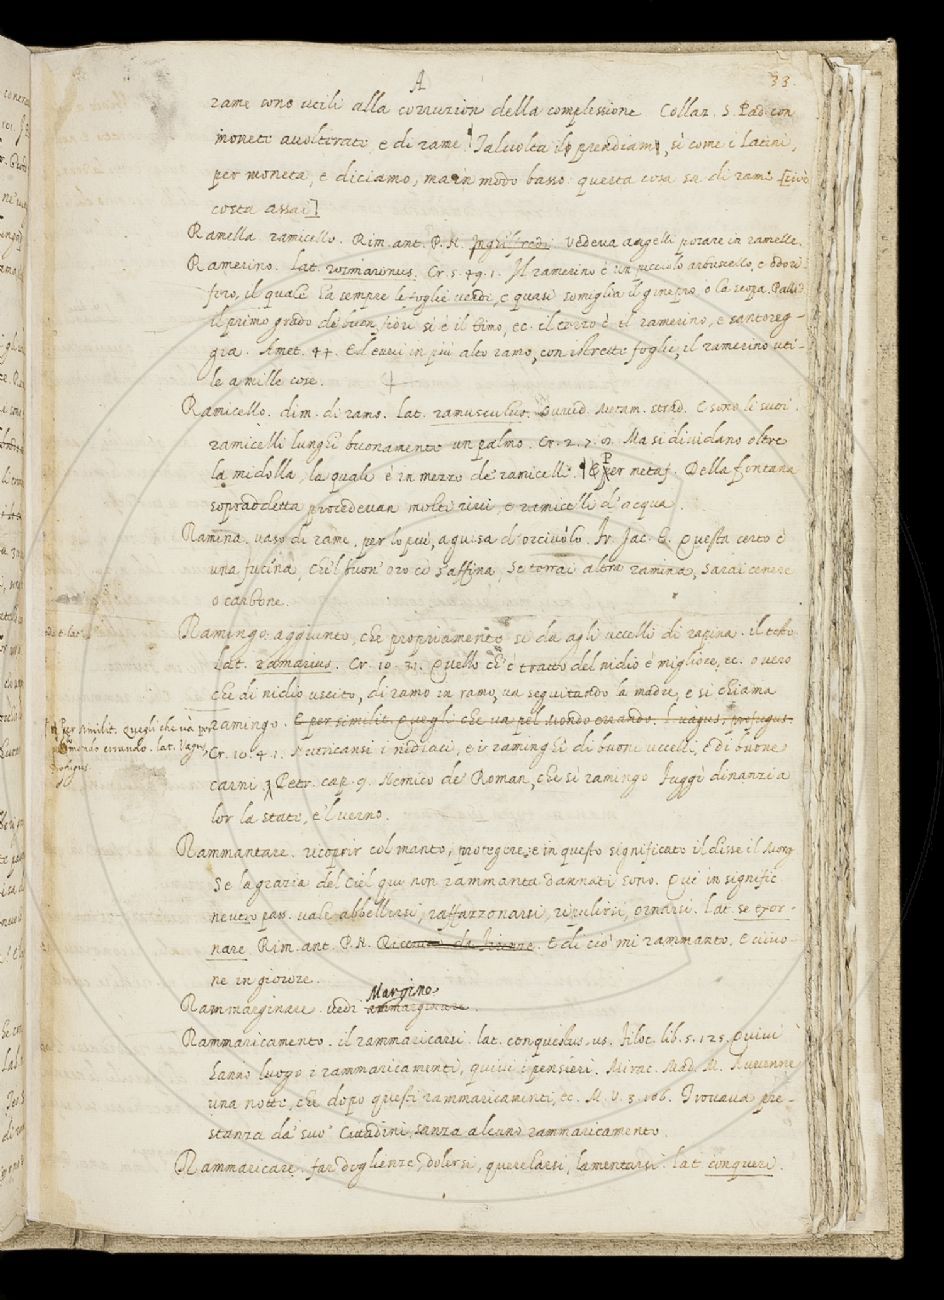 A
33.
rame sono utili alla corruzion della complessione. Collaz. S. Pad. con
monete avolterate, e di rame. Talvolta lo prendiam, sì come i Latini,
per moneta, e diciamo, ma in modo basso: questa cosa sa di rame [cioè
costa assai]
Ramella. ramicello. Rim. ant. P. N. Inghilfredi. Vedeva augelli posare in ramelle.
Ramerino. lat. rosmarinus. Cr. 5. 49. 1. Il ramerino è un piccolo arbuscello, e odori-
fero, il quale ha sempre le foglie verdi, e quasi somiglia il ginepro o la scopa. Pallad.
il primo grado de' buon fiori si è il timo, ec. il terzo è il ramerino, e santoreg-
gia. Amet. 44. Ed evvi in più alto ramo, con istrette foglie, il ramerino uti-
le a mille cose.
Ramicello. dim. di ramo. lat. ramusculus. Ovvid. Metam. strad. E sono li suoi
ramicelli lunghi buonamente un palmo. Cr. 2. 7. 2. Ma si dividano oltre
la midolla, la quale è in mezzo de' ramicelli. Per metaf. Della fontana
sopraddetta procedevan molti rivi, e ramicelli d'acqua.
Ramina. vaso di rame. per lo più, a guisa d'orciuolo. Fr. Jac. T. Questa certo è
una fucina, che 'l buon' oro ci s'affina, Se torrai altra ramina, Sarai cenere
o carbone.
Ramingo. aggiunto, che propriamente si da agli uccelli di rapina. il testo
Lat. ramarius. Cr. 10. 31. Quello ch'è tratto del nidio è migliore, ec. overo
che di nidio uscito, di ramo in ramo, va seguitando la madre, e si chiama
ramingo. E per similit. Quegli che va pel Mondo errando. l. vagus, profugus.
Per similit. Quegli che và pel
mondo errando. lat. Vagus,
profugus.
Cr. 10. 4. 1. Nutricansi i nidiaci, e i raminghi di buone uccelli, e di buone
carni. Petr. cap. 9. Nemico de' Roman, che sì ramingo Fuggì dinanzi a
lor la state, e 'l verno.
Rammantare. ricoprir col manto, proteggere, e in questo significato il disse il Morg.
Se la grazia del Ciel qui non rammanta Dannati sono. Qui in signific.
neutro pass. vale abbellirsi, raffazzonarsi, ripulirsi, ornarsi. lat. se exor-
nare. Rim. ant. P. N. E di ciò mi rammanto, E vivo-
ne in gioiore.
Rammarginare. vedi ammarginare. Margine.
Rammaricamento. il rammaricarsi. lat. conquestus, us. Filoc. lib. 5. 125. Quivi
hanno luogo i rammaricamenti, quivi i pensieri. Mirac. Mad. M. Avvenne
una notte, che dopo questi rammaricamenti, ec. M. V. 3. 106. Trovava pre-
stanza da' suoi Cittadini, sanza alcuno rammaricamento.
Rammaricare. far doglienze, dolersi, querelarsi, lamentarsi. lat. conqueri.